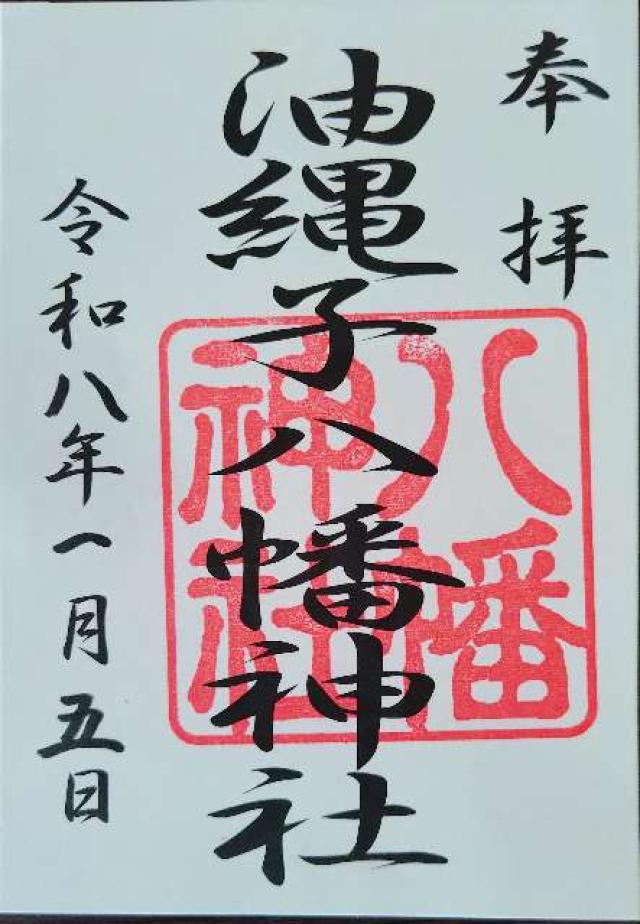 奉拝
油縄子八幡神社
八幡
神社
令和八年一月五日